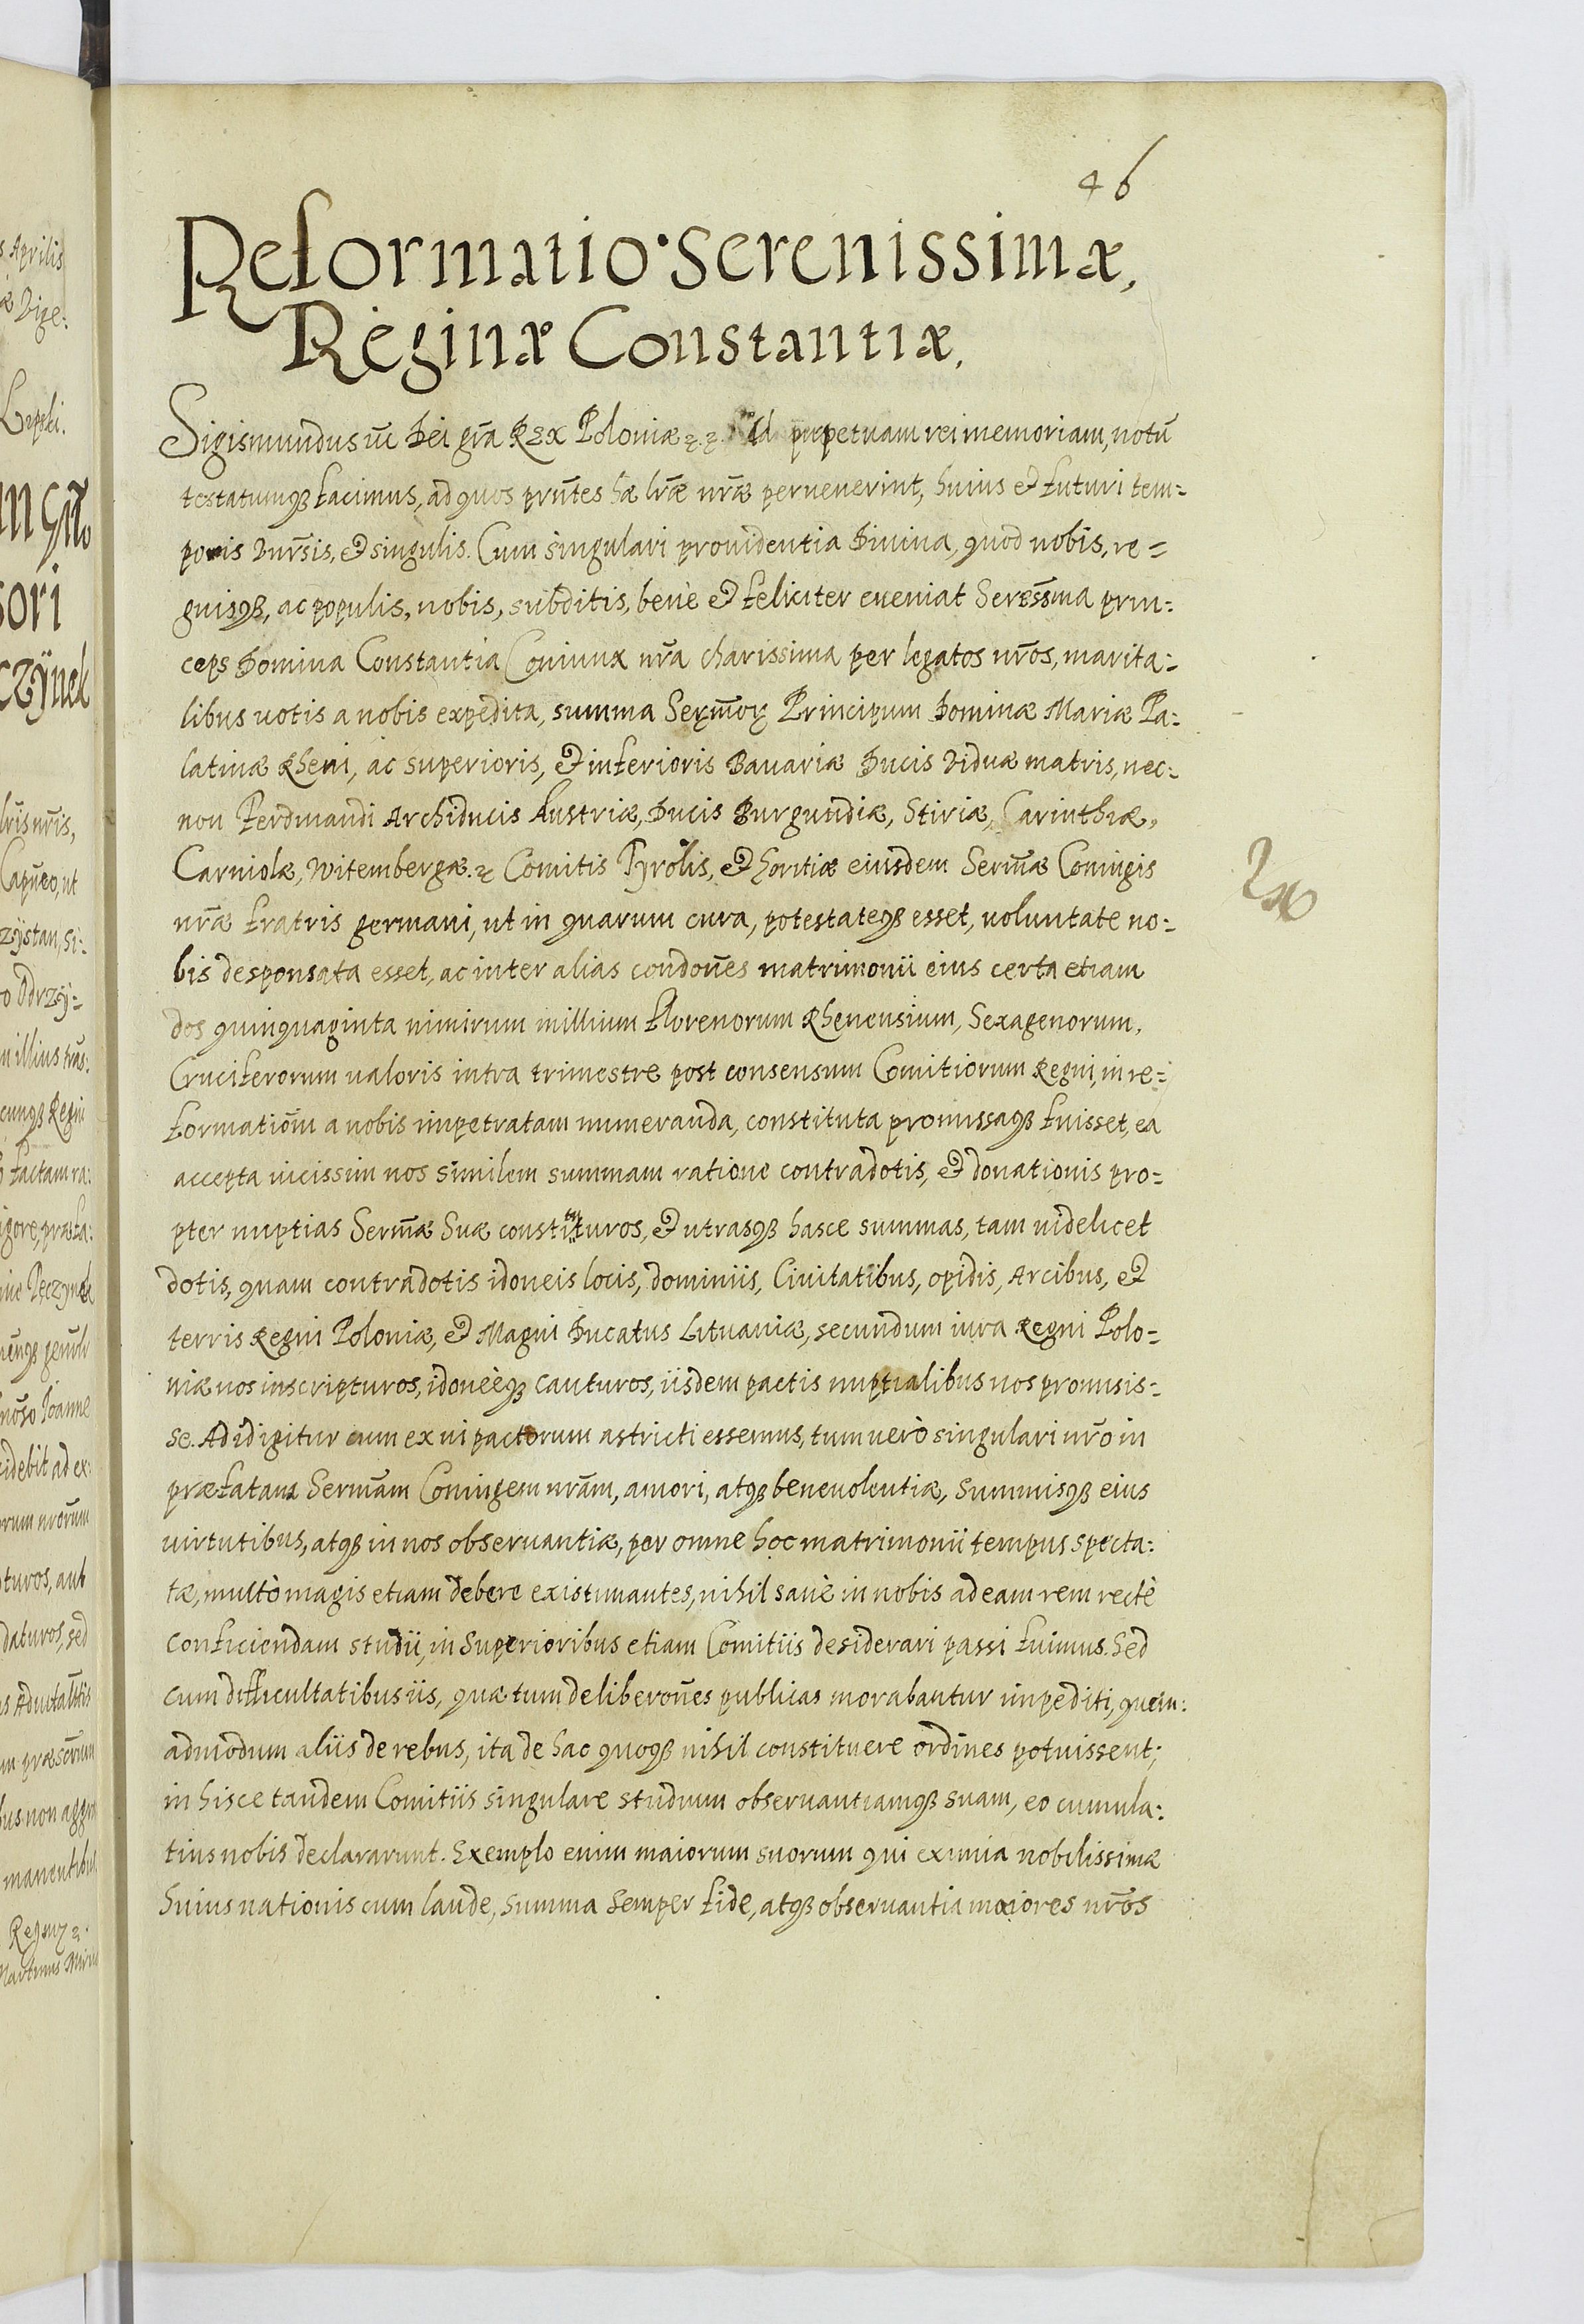 46
Reformatio Serenissimæ,
Reginæ Constantiæ.
Sigismundus IIĪ Dei grā Rex Poloniæ ꝛc. ꝛc. Ad perpetuam rei memoriam, notū
testatumqꝫ facimus, ad quos prñtes hæ lr̄æ nr̄æ pervenerint, huius et futuri tem=
poris vnr̄sis, et singulis. Cum singulari providentia Divina, quod nobis, re=
gnisqꝫ, ac populis, nobis, subditis, benè et feliciter eveniat Serēssma prin:
ceps Domina Constantia Coniunx nr̄a charissima per legatos nr̄os, marita:
libus votis a nobis expedita, summa Sermorꝝ Principum Dominæ Mariæ Pa:
latinæ Rheni, ac superioris, et inferioris Bavariæ Ducis Viduæ matris, nec:
non Ferdinandi Archiducis Austriæ, Ducis Burgundiæ, Stiriæ, Carinthiæ,
Carniolæ, Witembergæ ꝛc Comitis Tyrolis, et Goritiæ eiusdem Sermæ Coniugis
nr̄æ fratris germani, ut in quarum cura, potestateqꝫ esset, voluntate no:
bis desponsata esset, ac inter alias condōnes matrimonii eius certa etiam
dos quinquaginta nimirum millium florenorum Rhenensium, Sexagenorum,
Cruciferorum valoris intra trimestre post consensum Comitiorum Regni, in re=
formatiōm a nobis impetratam numeranda, constituta promissaqꝫ fuisset, ea
accepta vicissim nos similem summam ratione contradotis, et donationis pro:
pter nuptias Sermæ Suæ constituturos, et utrasqꝫ hasce summas, tam videlicet
dotis, quam contradotis idoneis locis, dominiis, Civitatibus, opidis, Arcibus, et
terris Regni Poloniæ, et Magni Ducatus Lituaniæ, secundum iura Regni Polo=
niæ nos inscripturos, idoneèqꝫ cauturos, iisdem pactis nuptialibus nos promisis=
se. Ad id igitur cum ex vi pactorum astricti essemus, tum verò singulari nr̄o in
præfatam Sermam Coniugem nr̄am, amori, atqꝫ benevolentiæ, summisqꝫ eius
virtutibus, atqꝫ in nos observantiæ, per omne hoc matrimonii tempus specta:
tæ, multò magis etiam debere existimantes, nihil sanè in nobis ad eam rem rectè
conficiendam studii, in superioribus etiam Comitiis desiderari passi fuimus. Sed
cum difficultatibus iis, quæ tum deliberōnes publicas morabantur impediti, quem:
admodum aliis de rebus, ita de hac quoqꝫ nihil constituere ordines potuissent;
in hisce tandem Comitiis singulare studium observantiamqꝫ suam, eo cumula:
tius nobis declararunt. Exemplo enim maiorum suorum qui eximia nobilissimæ
huius nationis cum laude, summa semper fide, atqꝫ observantia maiores nr̄os